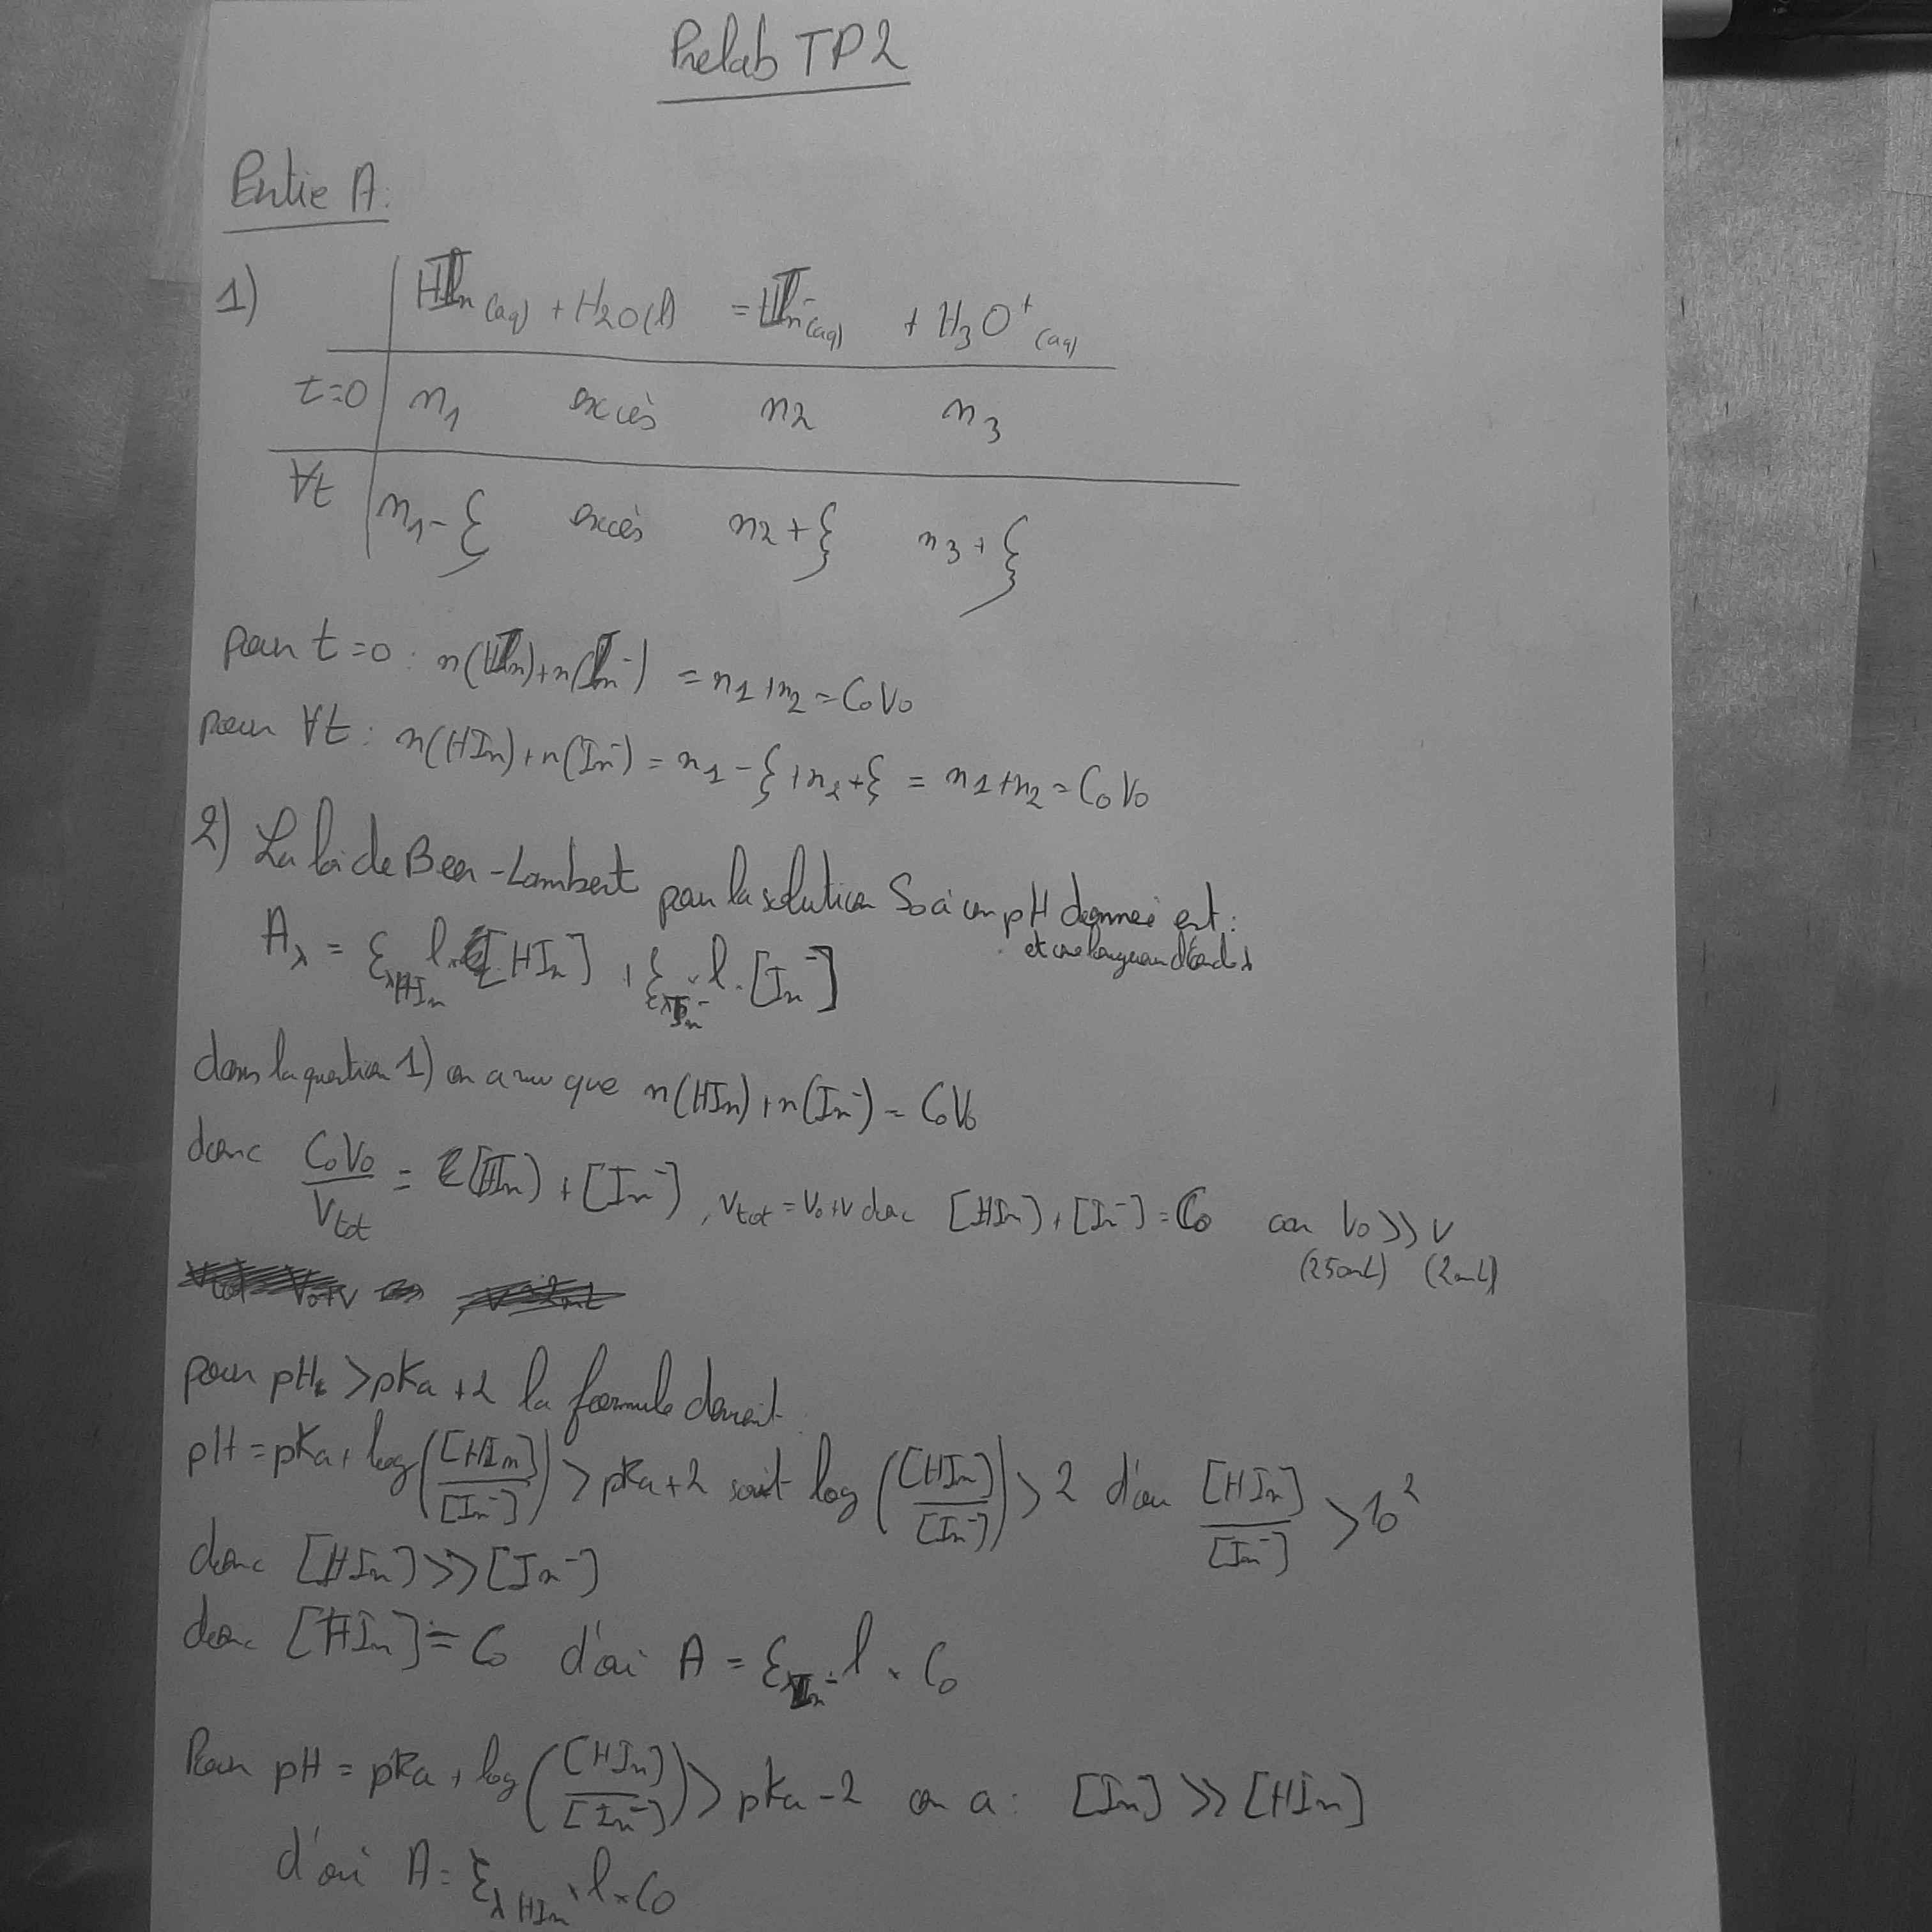 Prelab TP2
Partie A:
1) HIn (aq) + H2O(l) = In-(aq) + H3O+ (aq)
t=0 n1 excès n2 n3
∀t n1-ξ excès n2+ξ n3+ξ
pour t=0 : n(HIn)+n(In-) = n1+n2 = C0V0
pour ∀t : n(HIn)+n(In-) = n1-ξ+n2+ξ = n1+n2 = C0V0
2) La loi de Beer-Lambert pour la solution S0 à un pH donnée est :
et une longueur d'onde λ
Aλ = ελHIn l.[HIn] + ελIn- × l.[In-]
dans la question 1) on a vu que n(HIn)+n(In-) = C0V0
donc C0V0/Vtot = [HIn] + [In-], Vtot = V0+V donc [HIn]+[In-] = C0 car V0 >> V
(25mL) (2mL)
pour pH > pKa+2 la formule devient
pH = pKa + log([HIn]/[In-]) > pKa+2 soit log([HIn]/[In-]) > 2 d'où [HIn]/[In-] > 10²
donc [HIn] >> [In-]
donc [HIn] = C0 d'où A = ελIn- l × C0
Pour pH = pKa + log([HIn]/[In-]) > pKa-2 on a : [In] >> [HIn]
d'où A = ελHIn × l × C0